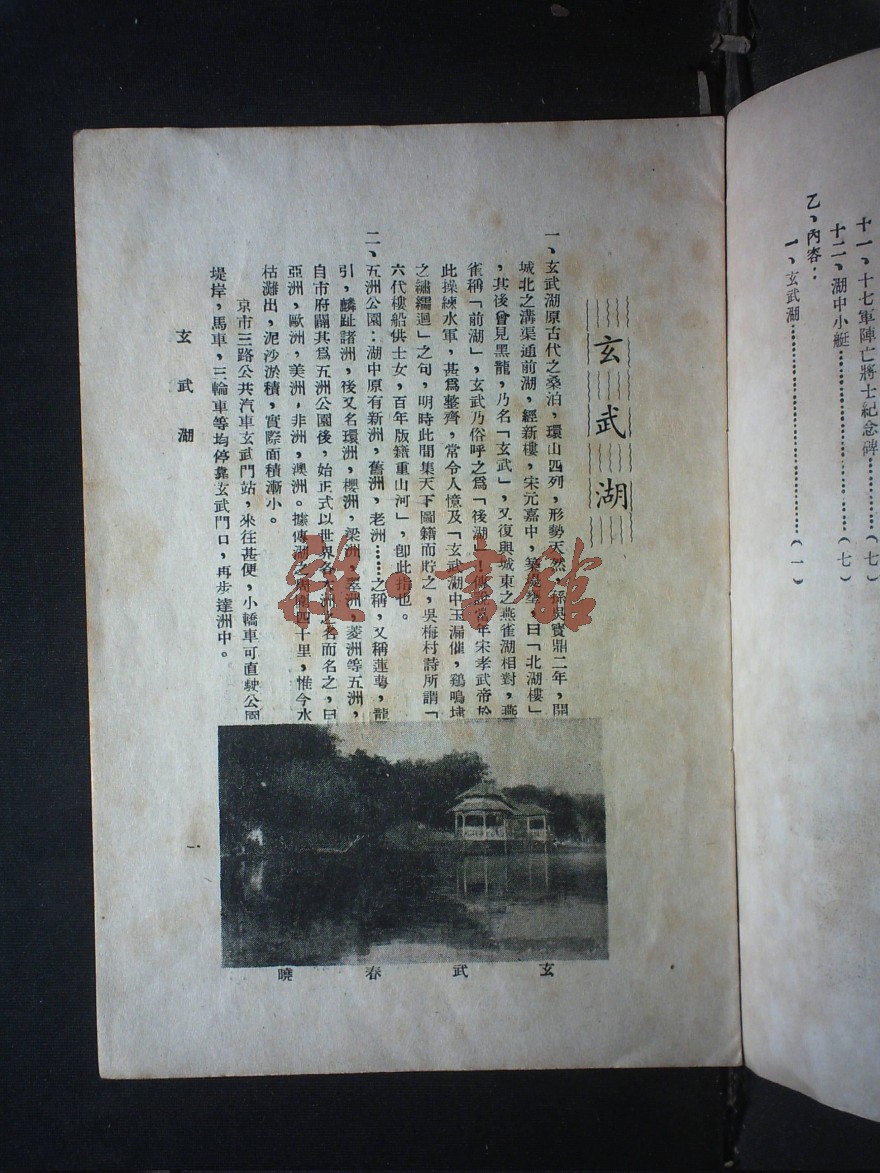 十一、十七軍陣亡將士紀念碑……(七)
十二、湖中小艇……(七)
乙、內容：
一、玄武湖……(一)
玄武湖
一、玄武湖原古代之桑泊，環山四列，形勢天然，孫吳寶鼎二年，開
城北之溝渠通前湖，經新樓，宋元嘉中，築堤壘，曰「北湖樓」
，其後曾見黑龍，乃名「玄武」，又復與城東之燕雀湖相對，燕
雀稱「前湖」，玄武乃俗呼之爲「後湖」！傳說當年宋孝武帝於
此操練水軍，甚爲整齊，常令人憶及「玄武湖中玉漏催，鷄鳴埭
之繡襦迴」之句，明時此間集天下圖籍而貯之，吳梅村詩所謂「
六代樓船供士女，百年版籍重山河」，卽此指也。
二、五洲公園：湖中原有新洲，舊洲，老洲……之稱，又稱蓮萼，龍
引，麟趾諸洲，後又名環洲，櫻洲，梁洲，翠洲，菱洲等五洲，
自市府闢其爲五洲公園後，始正式以世界各大洲之名而名之，曰
亞洲，歐洲，美洲，非洲，澳洲。據傳湖之周圍四十里，惟今水
枯灘出，泥沙淤積，實際面積漸小。
京市三路公共汽車玄武門站，來往甚便，小轎車可直駛公園
堤岸，馬車，三輪車等均停靠玄武門口，再步達洲中。
玄武春曉
玄武湖
一
雜·書館